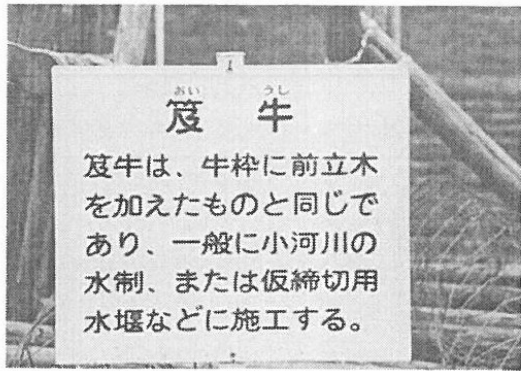 おい うし
笈 牛
笈牛は、牛枠に前立木
を加えたものと同じで
あり、一般に小河川の
水制、または仮締切用
水堰などに施工する。